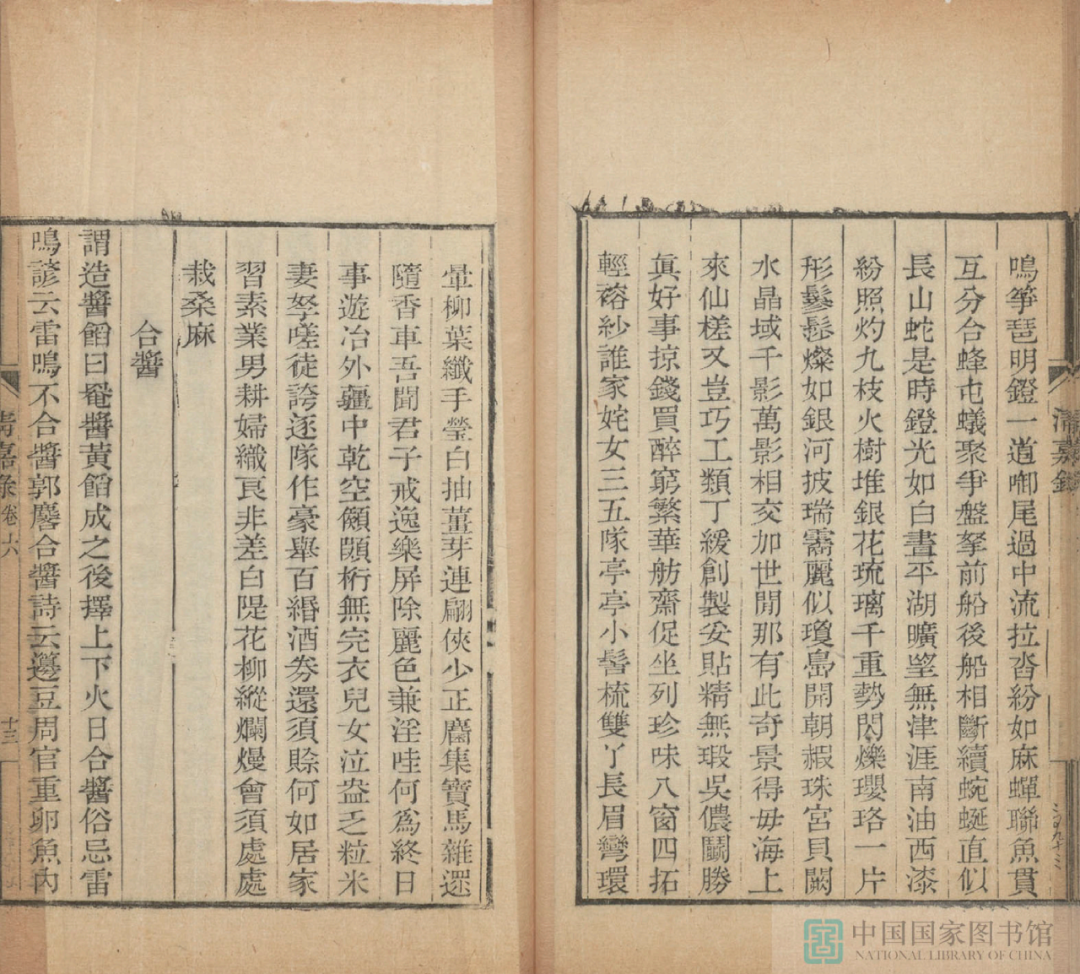 鳴箏琶明鐙一道啣尾過中流拉沓紛如麻蟬聯魚貫
互分合蜂屯蟻聚爭盤拏前船後船相斷續蜿蜒直似
長山蛇是時鐙光如白晝平湖曠望無津涯南油西漆
紛照灼九枝火樹堆銀花琉璃千重勢閃爍瓔珞一片
形鬖髿燦如銀河披瑞靄麗似瓊島開朝霞珠宮貝闕
水晶域千影萬影相交加世閒那有此奇景得毋海上
來仙槎又豈巧工類丁緩創製妥貼精無瑕吳儂鬭勝
眞好事掠錢買醉窮繁華舫齋促坐列珍味八窗四拓
輕褣紗誰家姹女三五隊亭亭小髻梳雙丫長眉彎環
清嘉錄
暈柳葉纖手瑩白抽薑芽連翩俠少正麕集寶馬雜遝
隨香車吾聞君子戒逸樂屏除麗色兼淫哇何爲終日
事遊冶外疆中乾空顑頷桁無完衣兒女泣盎乏粒米
妻孥嗟徒誇逐隊作豪舉百緡酒券還須賒何如居家
習素業男耕婦織良非差白隄花柳縱爛熳會須處處
栽桑麻
合醬
謂造醬餡曰罨醬黃餡成之後擇上下火日合醬俗忌雷
鳴諺云雷鳴不合醬郭麐合醬詩云籩豆周官重卵魚內
清嘉录 卷六
十三
中国国家图书馆
NATIONAL LIBRARY OF CHINA